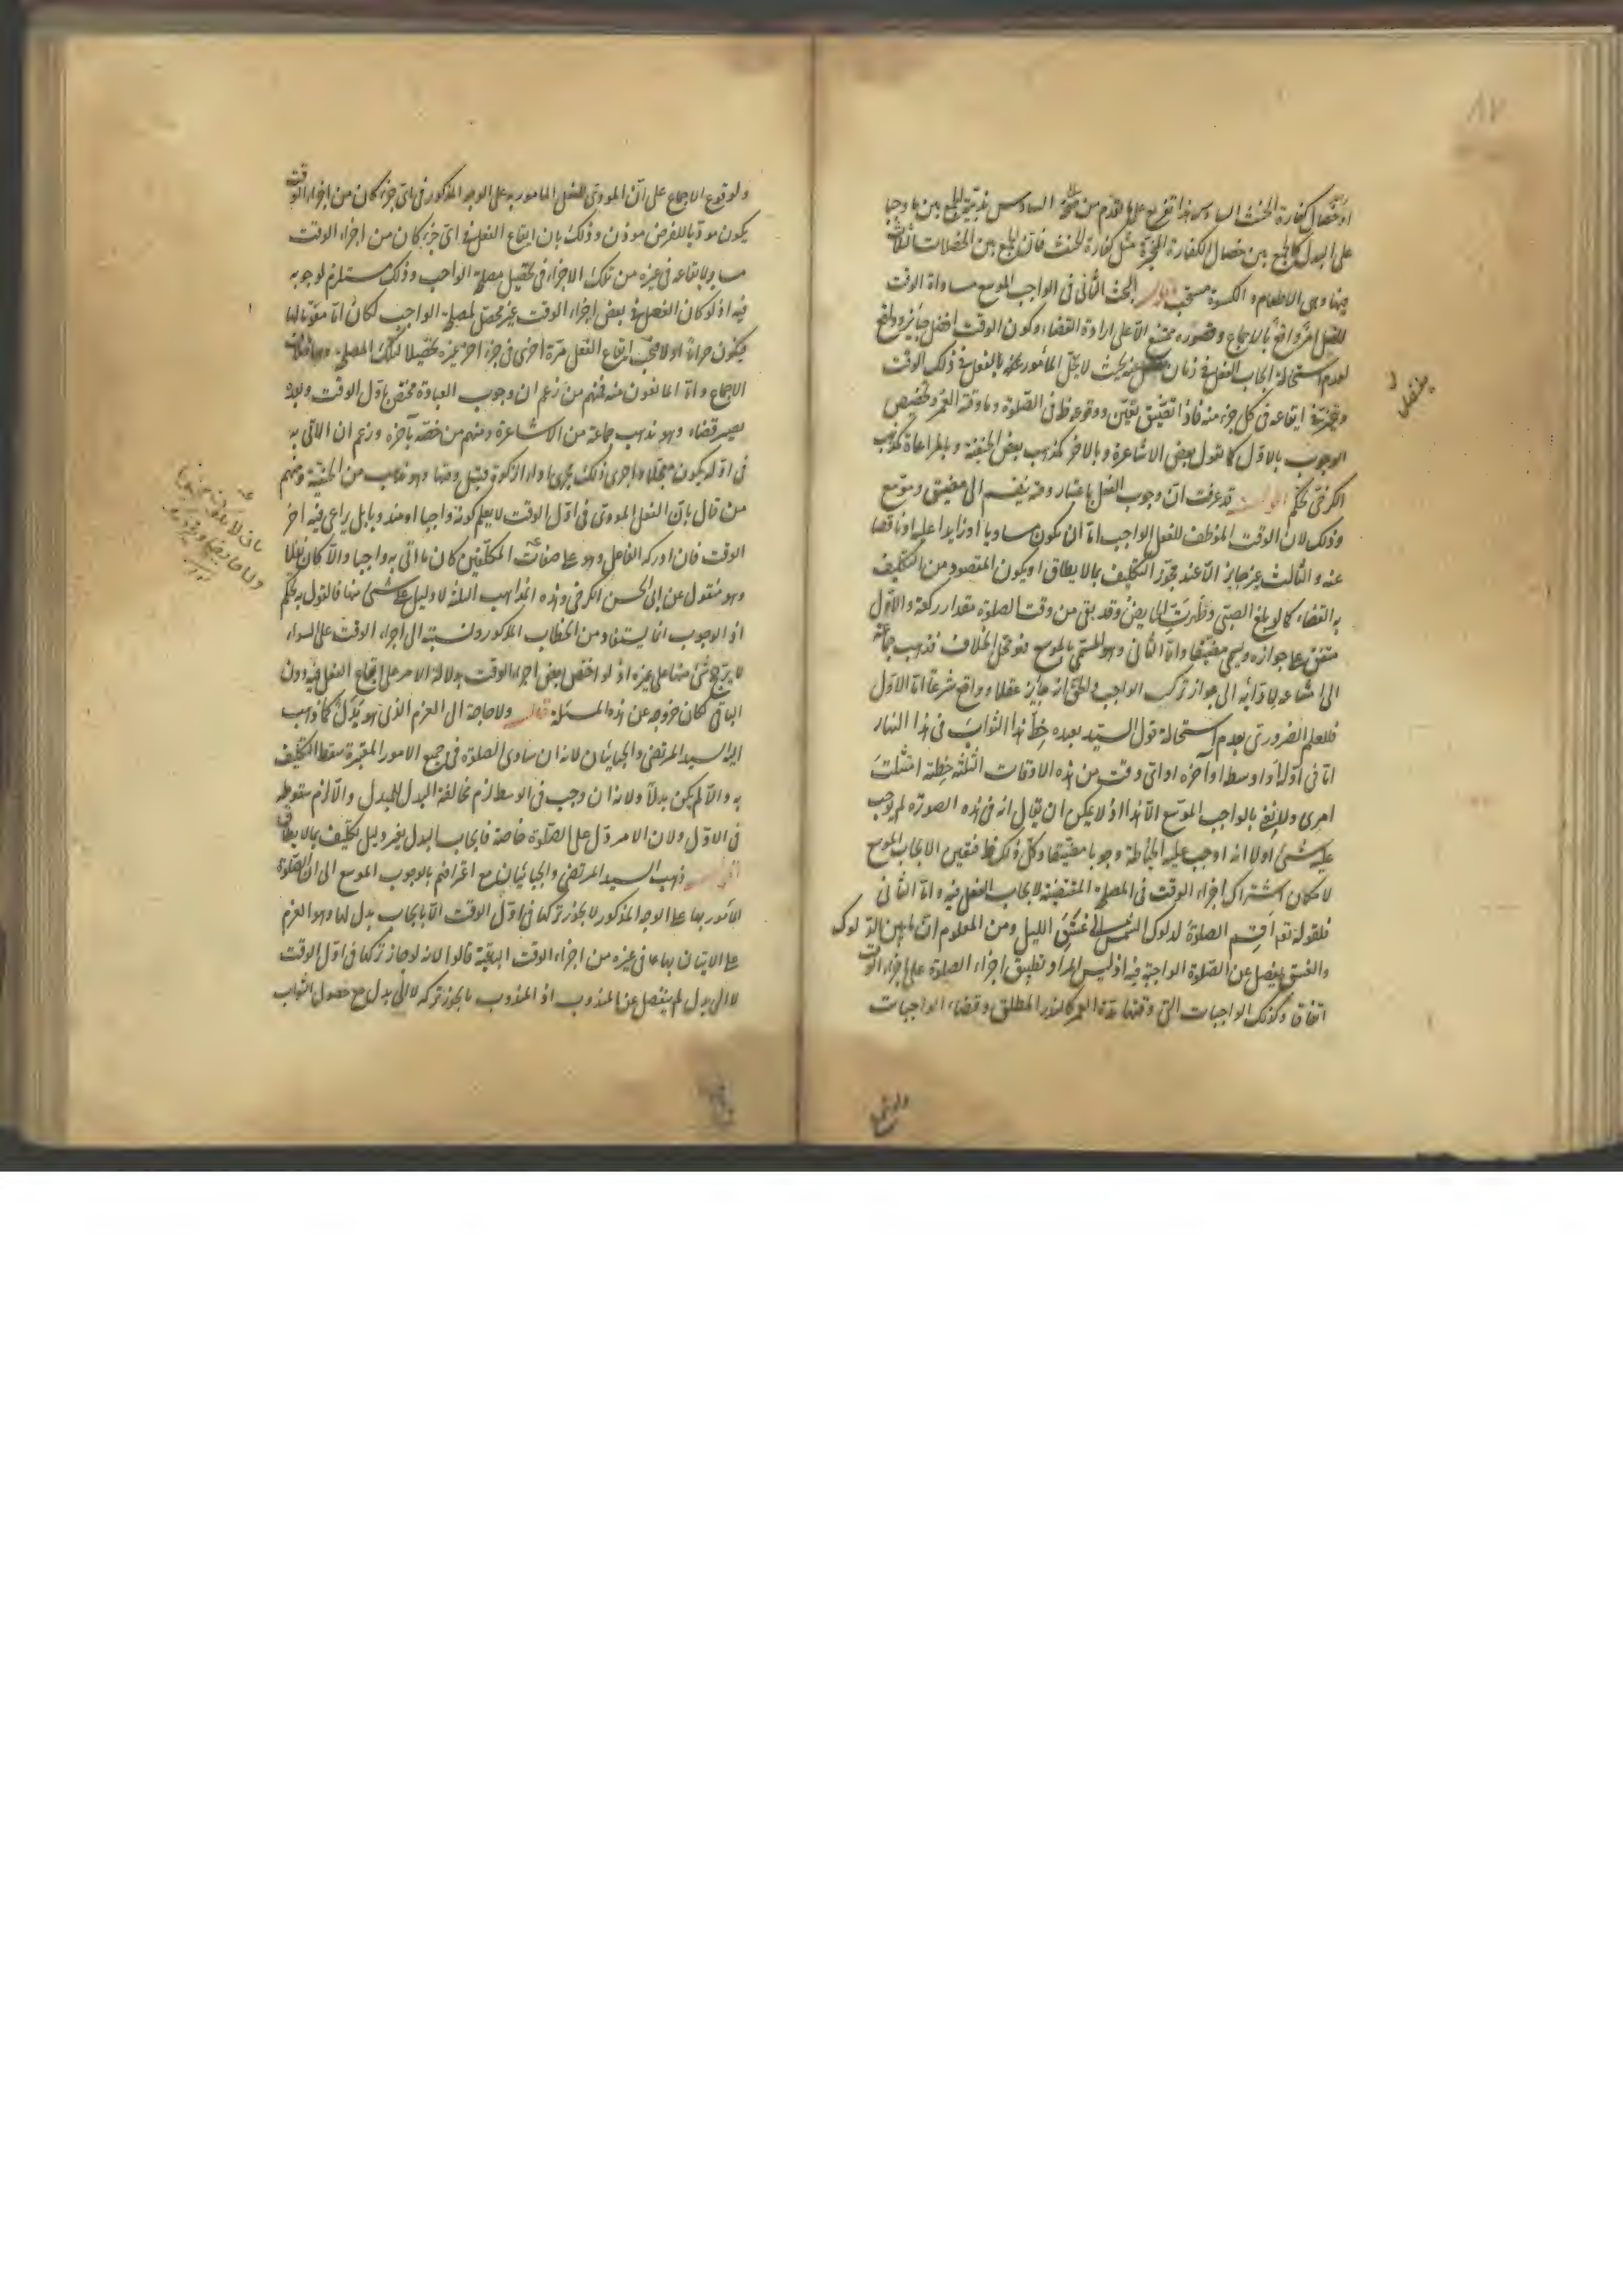 على البدل كالجمع بين خصال الكفارة المخيرة مثل كفارة الحنث فان الجمع بين الخصلات الثلاث
منها وهى الاطعام والكسوة مستحب قال البحث الثانى فى الواجب الموسع مساواة الوقت
للفعل امر واقع بالاجماع وقصوره ممتنع الا على ارادة القضاء وكون الوقت افضل جايز وواقع
لعدم استحالة ايجاب الفعل فى زمان يفضل عنه بحيث لا يخل المأمور به بالفعل فى ذلك الوقت
وتخير فى ايقاعه فى كل جزء منه فاذا تضيق تعين ووقوعه ظ فى الصلوة وما وقته العمر وتخصيص
الوجوب بالاول كما يقول بعض الاشاعرة وبالاخر كمذهب بعض الحنفية وبالمراعاة كمذهب
الكرخى تحكم اقول قد عرفت ان وجوب الفعل باعتبار وقته ينقسم الى مضيق وموسع
وذلك لان الوقت الموظف للفعل الواجب اما ان يكون مساويا او زايدا عليه او ناقصا
عنه والثالث غير جايز الا عند مجوز التكليف بما لا يطاق او يكون المقصود من التكليف
به القضاء كما لو بلغ الصبى وطهرت الحايض وقد بقى من وقت الصلوة مقدار ركعة والاول
متفق على جوازه ويسمى مضيقا واما الثانى وهو المسمى بالموسع فهو محل الخلاف فذهب جماعة
الى امتناعه لادائه الى جواز ترك الواجب والحق انه جايز عقلا وواقع شرعا اما الاول
فللعلم الضرورى بعدم استحالة قول السيد لعبده خط هذا الثواب فى هذا النهار
اما فى اوله او وسطه او آخره او اى وقت من هذه الاوقات الثلثة خطته امتثلت
امرى ولا نعنى بالواجب الموسع الا هذا اذ لا يمكن ان يقال انه فى هذه الصورة لم يوجب
عليه شئ اولا انه اوجب عليه الخياطة وجوبا مضيقا وكل ذلك ظ فتعين الايجاب الموسع
لامكان اشتراك اجزاء الوقت فى المصلحة المقتضية لايجاب الفعل فيه واما الثانى
فلقوله تعالى اقم الصلوة لدلوك الشمس الى غسق الليل ومن المعلوم ان ما بين الدلوك
والغسق يفضل عن الصلوة الواجبة فيه اذ ليس المراد تطبيق اجزاء الصلوة على اجزاء الوقت
اتفاقا وكذلك الواجبات التى وقتها مدة العمر كالنذر المطلق وقضاء الواجبات
ولوقوع الاجماع على ان المؤدى للفعل المأمور به على الوجه المذكور فى اى جزء كان من اجزاء الوقت
يكون مؤديا للفرض وذلك بان ايقاع الفعل فى اى جزء كان من اجزاء الوقت
مساو لايقاعه فى غيره من تلك الاجزاء فى تحصيل مصلحة الواجب وذلك مستلزم لوجوبه
فيه اذ لو كان الفعل فى بعض اجزاء الوقت غير محصل لمصلحة الواجب لكان اما مفوتا لها
فيكون حراما او لا فيجب ايقاع الفعل مرة اخرى فى جزء اخر غيره تحصيلا لتلك المصلحة وهما خلاف
الاجماع واما المانعون منه فمنهم من زعم ان وجوب العبادة مختص باول الوقت وبعده
يصير قضاء وهو مذهب جماعة من الاشاعرة ومنهم من خصه بآخره وزعم ان الآتى به
فى اوله يكون معجلا واجرى ذلك مجرى اداء الزكوة قبل وقتها وهو مذهب من الحنفية ومنهم
من قال بان الفعل المؤدى فى اول الوقت لا يعلم كونه واجبا او مندوبا بل يراعى فيه اخر
الوقت فان ادركه الفاعل وهو على صفات المكلفين كان ما اتى به واجبا والا كان نفلا
وهو منقول عن ابى الحسن الكرخى وهذه المذاهب الثلثة لا دليل على شئ منها فالقول به تحكم
اذ الوجوب انما يستفاد من الخطاب المذكور ونسبته الى اجزاء الوقت على السواء
لا يرجح شئ منها على غيره اذ لو اختص بعض اجزاء الوقت بدلالة الامر على ايقاع الفعل فيه دون
الباقى لكان خروجه عن هذه المسئلة قال ولا حاجة الى العزم الذى هو بدل كما ذهب
اليه السيد المرتضى والجبائيان لانه ان ساوى الصلوة فى جميع الامور المعتبرة سقط التكليف
به والا لم يكن بدلا ولانه ان وجب فى الوسط لزم مخالفة البدل للمبدل والا لزم سقوطه
فى الاول ولان الامر دل على الصلوة خاصة فايجاب البدل بغير دليل تكليف بما لا يطاق
اقول ذهب السيد المرتضى والجبائيان مع اعترافهم بالوجوب الموسع الى ان الصلوة
المأمور بها على الوجه المذكور لا يجوز تركها فى اول الوقت الا بايجاب بدل لها وهو العزم
على الاتيان بها فى غيره من اجزاء الوقت الباقية قالوا لانه لو جاز تركها فى اول الوقت
لا الى بدل لم ينفصل عن المندوب اذ المندوب ما يجوز تركه لا الى بدل مع حصول الثواب